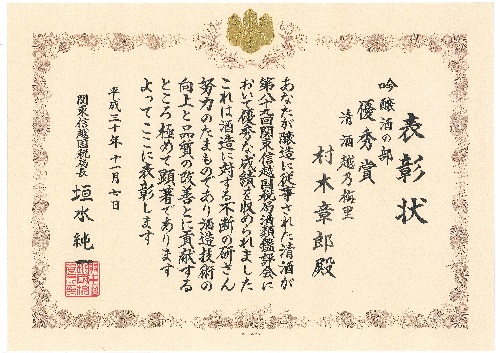 表彰状
吟醸酒の部
優秀賞
清酒越乃梅里
村木章郎殿
あなたが醸造に従事された清酒が
第八十九回関東信越国税局酒類鑑評会に
おいて優秀な成績を収められました
これは酒造に対する不断の研さん
努力のたまものであり酒造技術の
向上と品質の改善とに貢献する
ところ極めて顕著であります
よってここに表彰します
平成三十年十一月七日
関東信越国税局長
垣水純一